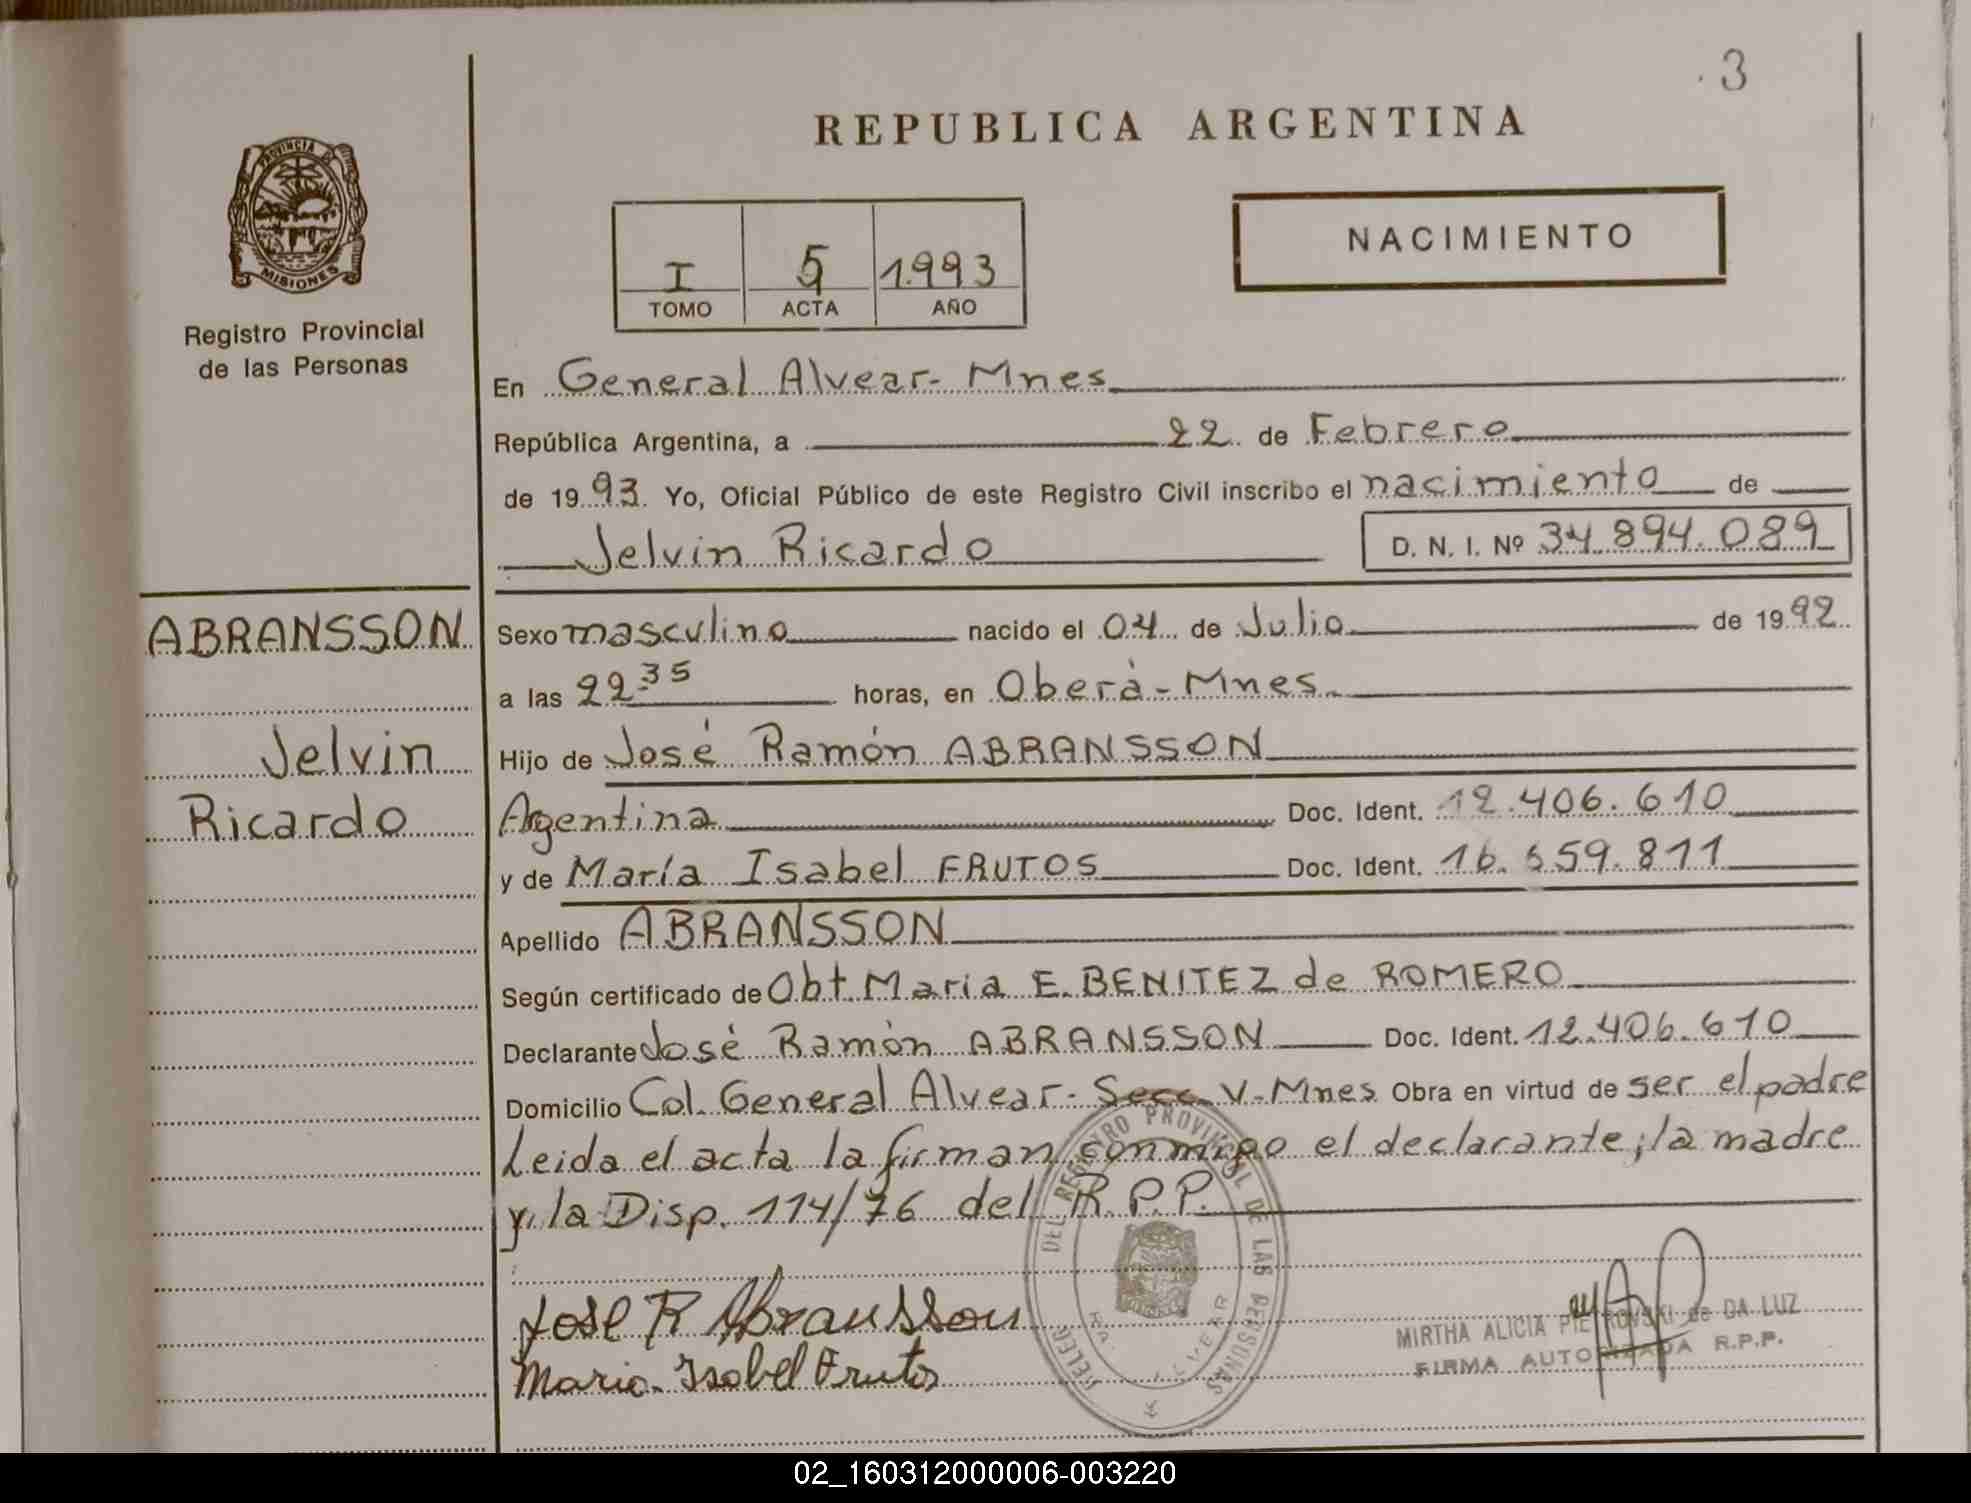 3
REPUBLICA ARGENTINA
PROVINCIA DE
MISIONES
Registro Provincial
de las Personas
I 5 1.993
TOMO ACTA AÑO
NACIMIENTO
En General Alvear - Mnes
República Argentina, a 22 de Febrero
de 1993. Yo, Oficial Público de este Registro Civil inscribo el nacimiento de
Jelvin Ricardo D. N. I. Nº 34.894.089
ABRANSSON
Jelvin
Ricardo
Sexo masculino nacido el 04 de Julio de 1992
a las 22.35 horas, en Oberá - Mnes
Hijo de José Ramón ABRANSSON
Argentina Doc. Ident. 12.406.610
y de María Isabel FRUTOS Doc. Ident. 16.659.811
Apellido ABRANSSON
Según certificado de Obt. Maria E. BENITEZ de ROMERO
Declarante José Ramón ABRANSSON Doc. Ident. 12.406.610
Domicilio Col. General Alvear - Secc. V - Mnes Obra en virtud de ser el padre
Leida el acta la firman conmigo el declarante; la madre
y la Disp. 114/76 del R.P.P.
DEL REGISTRO PROVINCIAL DE LAS PERSONAS
Jose R Abransson
Maria Isabel Frutos
MIRTHA ALICIA PIETROVSKI de DA LUZ
FIRMA AUTORIZADA R.P.P.
02_160312000006-003220